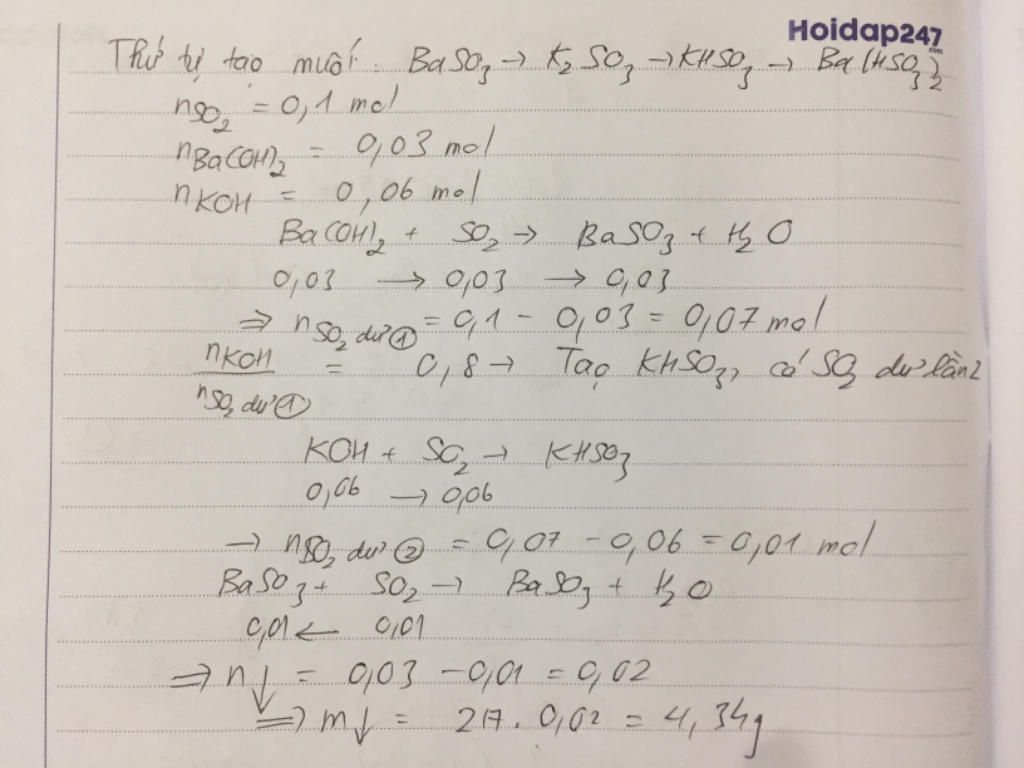 Hoidap247
.com
Thứ tự tạo muối: BaSO₃ → K₂SO₃ → KHSO₃ → Ba(HSO₃)₂
nSO₂ = 0,1 mol
nBa(OH)₂ = 0,03 mol
nKOH = 0,06 mol
Ba(OH)₂ + SO₂ → BaSO₃ + H₂O
0,03 → 0,03 → 0,03
⇒ nSO₂ dư ① = 0,1 - 0,03 = 0,07 mol
nKOH / nSO₂ dư ① = 0,8 → Tạo KHSO₃, có SO₂ dư lần 2
KOH + SO₂ → KHSO₃
0,06 → 0,06
→ nSO₂ dư ② = 0,07 - 0,06 = 0,01 mol
BaSO₃ + SO₂ → BaSO₃ + H₂O
0,01 ← 0,01
⇒ n↓ = 0,03 - 0,01 = 0,02
⇒ m↓ = 217 . 0,02 = 4,34g